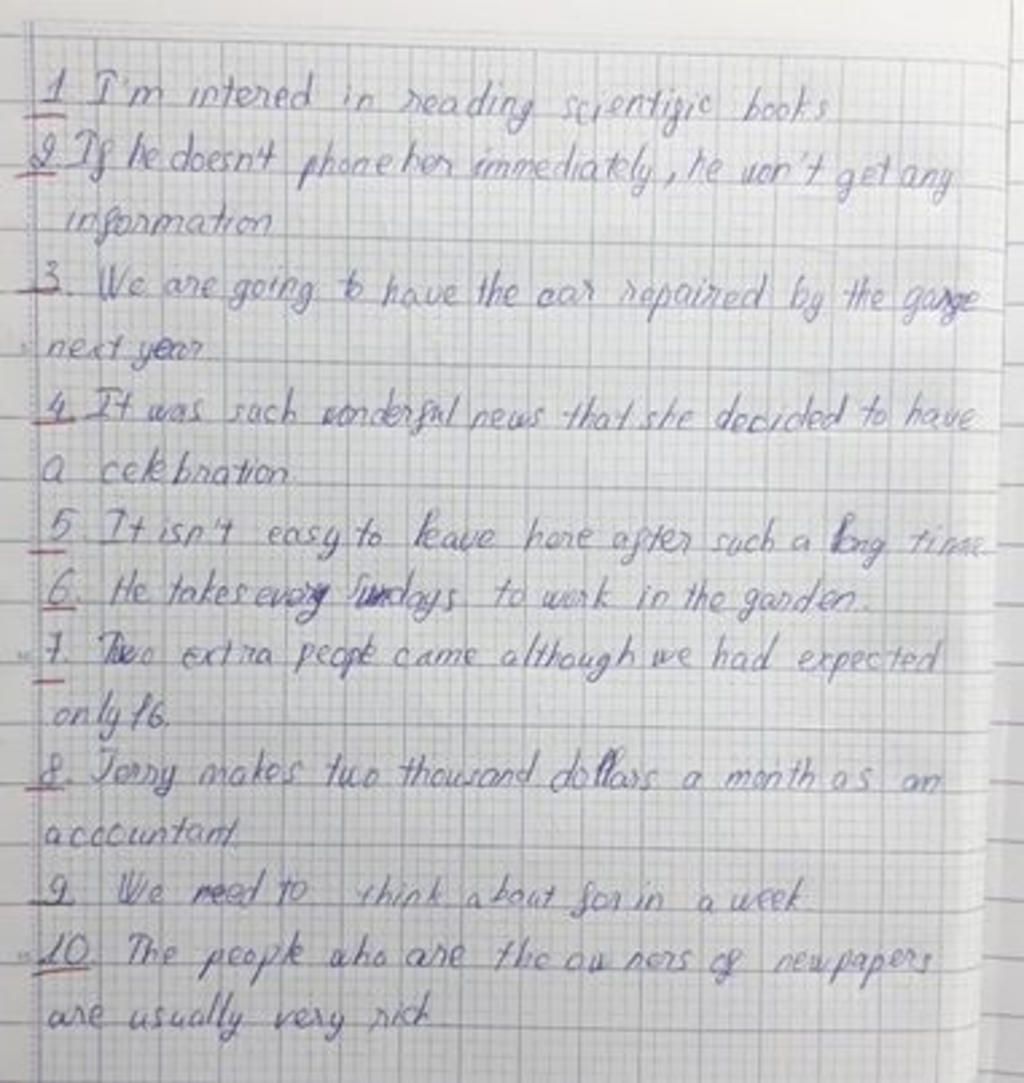 1 I'm intered in reading scientific books
2 If he doesn't phone her immediately, he won't get any
information
3. We are going to have the car repaired by the garge
next year
4. It was such wonderful news that she decided to have
a celebration.
5 It isn't easy to leave here after such a long time
6. He takes every Sundays to work in the garden.
7. Two extra people came although we had expected
only 16.
8. Jerry makes two thousand dollars a month as an
acccuntant
9. We need to think about for in a week
10. The people who are the owners of newpapers
are usually very rich